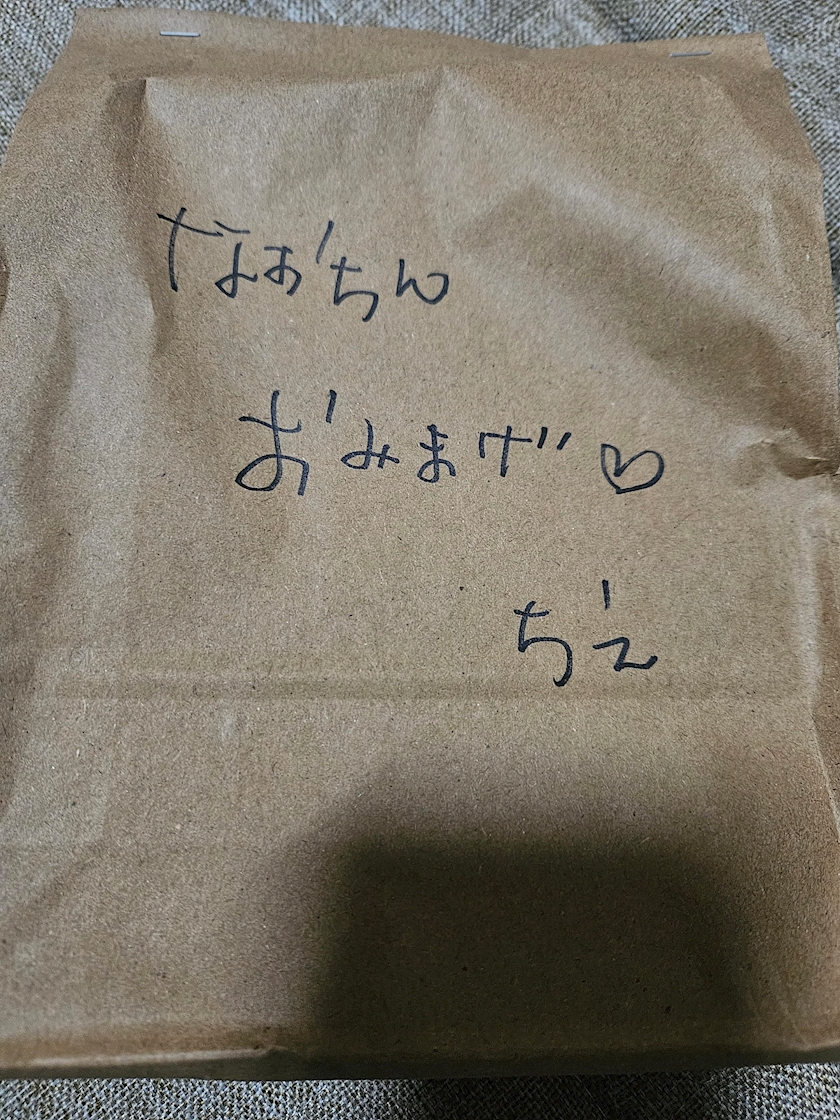 なおちん
おみまげ♡
ちえ